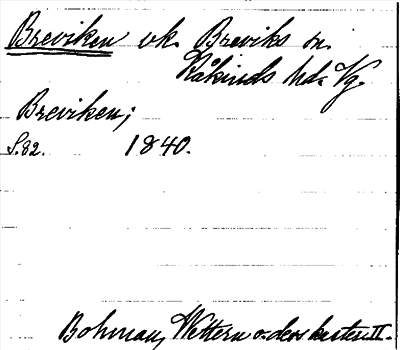 Breviken vk. Breviks sn.
Kåkinds hd. Vg
Breviken;
S.82. 1840.
Bohman, Wettern o. dess kuster II.